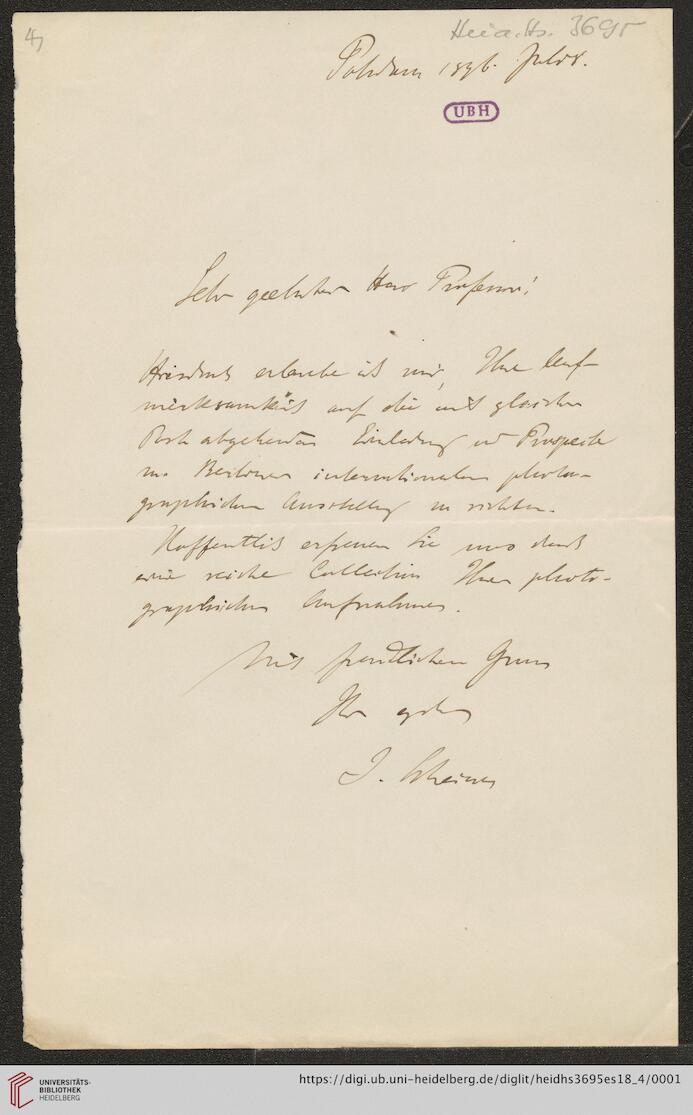 4)
Heid. Hs. 3695
Potsdam 1896. Juli 8.
UBH
Sehr geehrter Herr Professor!
Hierdurch erlaube ich mir, Ihre Auf-
merksamkeit auf die mit gleicher
Post abgehenden Einladung und Prospecte
zur Berliner internationalen photo-
graphischen Ausstellung zu richten.
Hoffentlich erfreuen Sie uns durch
eine reiche Collection Ihrer photo-
graphischen Aufnahmen.
Mit freundlichem Gruss
Ihr
J. Scheiner
https://digi.ub.uni-heidelberg.de/diglit/heidhs3695es18_4/0001
UNIVERSITÄTS-
BIBLIOTHEK
HEIDELBERG